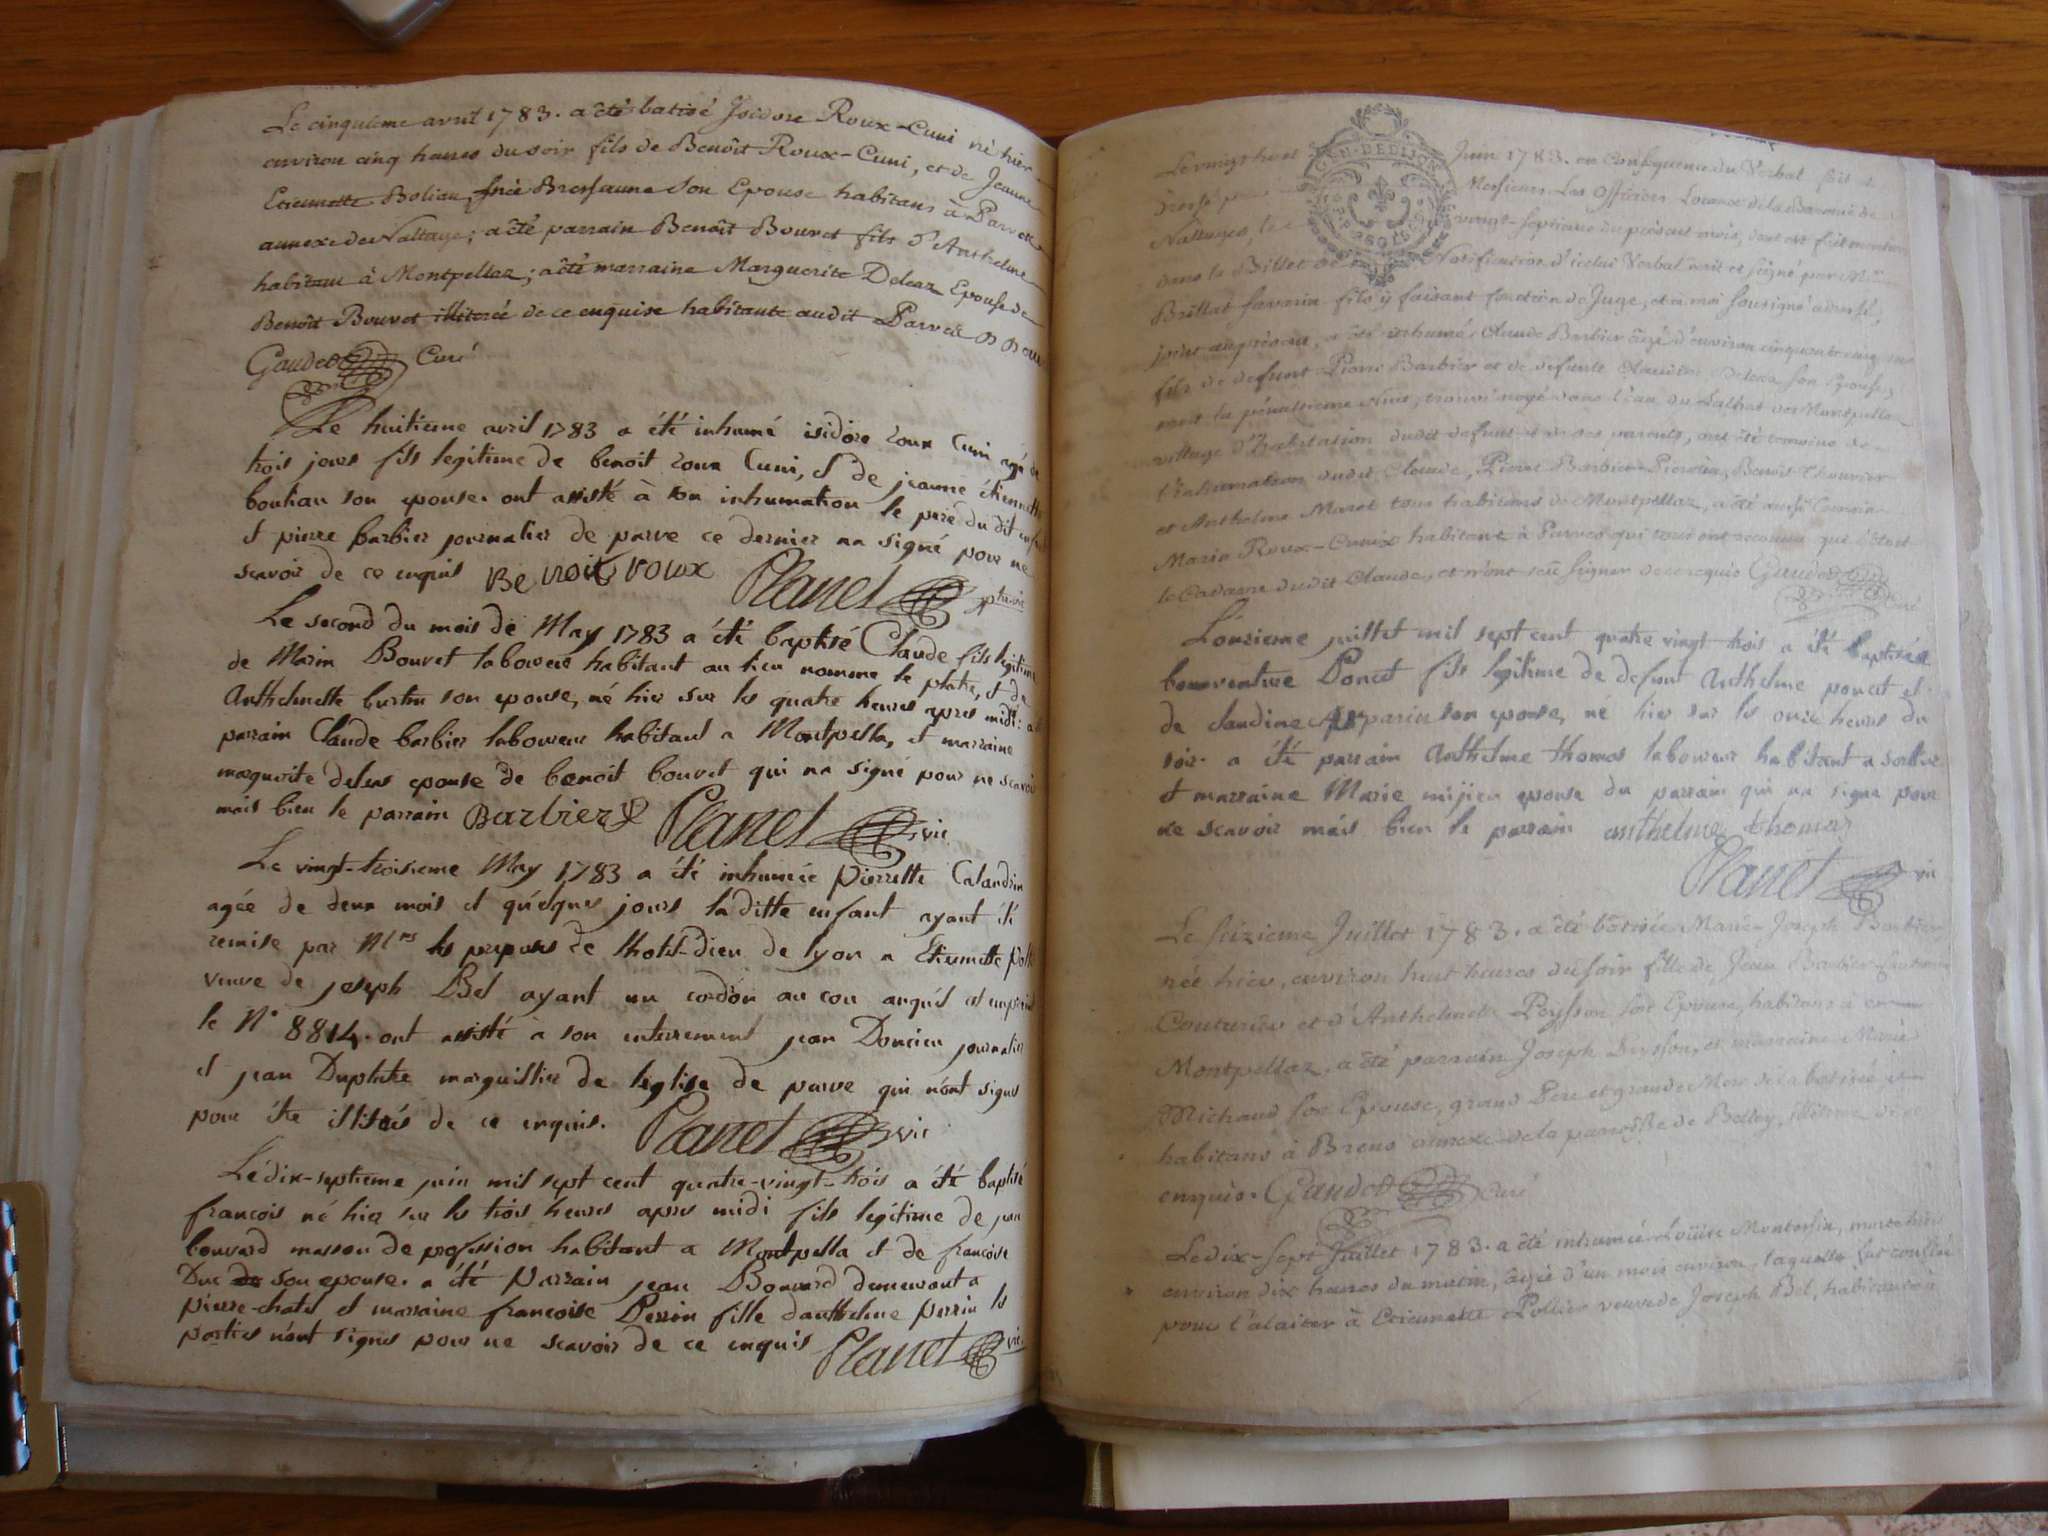 Le cinquieme avril 1783. a été batisé Isidore Roux-Cuni né hier
environ cinq heures du soir fils de Benoît Roux-Cuni, et de Jeanne
Etiennette Bolian, son Epouse habitans à Parves
annexe de Nattage; a été parrain Benoît Bouvet fils d'Anthelme
habitant à Montpellaz; a été marraine Marguerite Deleaz Epouse de
Benoît Bouvet illiterée de ce enquise habitante audit Parves
Gaudet Curé
Le huitieme avril 1783 a été inhumé isidore roux Cuni agé de
trois jours fils legitime de benoit roux Cuni, et de jeanne étiennette
boulian son epouse. ont assisté à son inhumation le pere du dit enfant
et pierre barbier journalier de parve ce dernier na signé pour ne
scavoir de ce enquis Benoit roux Planet
Le second du mois de May 1783 a été baptisé Claude fils legitime
de Marin Bouvet laboureur habitant au lieu nomme le platre, et de
Anthelmette burtin son epouse, né hier sur les quatre heures apres midi: a été
parrain Claude barbier laboureur habitant a Montpella, et marraine
marguerite deleas epouse de benoit bouvet qui na signé pour ne scavoir
mais bien le parrain Barbier Planet vic
Le vingt-troisieme May 1783 a été inhumée pierrette Calandrin
agée de deux mois et quelques jours la ditte enfant ayant été
remise par Mrs les preposés de lhotel-dieu de lyon a Etiennette
veuve de joseph Bel ayant un cordon au cou auquel est empreint
le N° 8814. ont assisté a son enterrement jean Doncieu journalier
et jean Duplatre marguillier de leglise de parve qui n'ont signé
pour être illiterés de ce enquis. Planet vic
Le dix-septieme juin mil sept cent quatre-vingt-trois a été baptisé
francois né hier sur les trois heures apres midi fils legitime de jean
bouvard masson de profession habitant a Montpella et de francoise
Duc son epouse. a été parrain jean Bouvard demeurant a
pierre-chatel et marraine francoise Perrin fille danthelme perrin les
parties n'ont signé pour ne scavoir de ce enquis Planet vic
Le vingt huit Juin 1783. en consequence du Verbal fait et
dressé Messieurs Les Officiers Locaux de la Baronie de
Nattages, le vingt-septieme du présent mois, dont est fait mention
dans le Billet de Notification d'icelui Verbal écrit et signé par Mr
Brillat Savarin fils y faisant fonction de Juge, et à moi soussigné adressé,
a été inhumé Claude Barbier âgé d'environ cinquante cinq ans
fils de defunt Pierre Barbier et de defunte Claudine Deleaz son Epouse,
mort la pénultieme nuit, trouvé noyé dans l'eau du
village d'habitation dudit defunt et de ses parents, ont été temoins de
l'inhumation dudit Claude, Pierre Barbier-Pierolin, Benoit Thouvrier
et Anthelme Maret tous habitans de Montpellaz, a été aussi temoin
Marin Roux-Cuni habitant à Parves qui tous ont reconnu que c'étoit
le Cadavre dudit Claude, et n'ont sçû signer de ce requis Gaudet Curé
L'onzieme juillet mil sept cent quatre vingt trois a été baptisé
bonaventure Poncet fils legitime de defunt Anthelme poncet et
de Claudine son epouse, né hier sur les onze heures du
soir. a été parrain Anthelme thomas laboureur habitant a sorlier
et marraine Marie mijieu epouse du parrain qui na signe pour
ne scavoir mais bien le parrain anthelme thomas
Planet vic
Le seizieme Juillet 1783. a été batisée Marie-Joseph Barbier
née hier, environ huit heures du soir fille de Jean Barbier
Couturier et d'Anthelmette Peysson son Epouse, habitans à
Montpellaz, a été parrain Joseph Peysson, et marraine Marie
Michaud son Epouse, grand Pere et grande Mere de la batisée
habitans à Brens annexe de la paroisse de Belley, illiterés de ce
enquis. Gaudet Curé
Le dix-sept Juillet 1783. a été inhumée Louise Montessin, morte hier
environ dix heures du matin, âgée d'un mois environ, laquelle fut confiée
pour l'alaiter à Etiennette Pollier veuve de Joseph Bel, habitante à